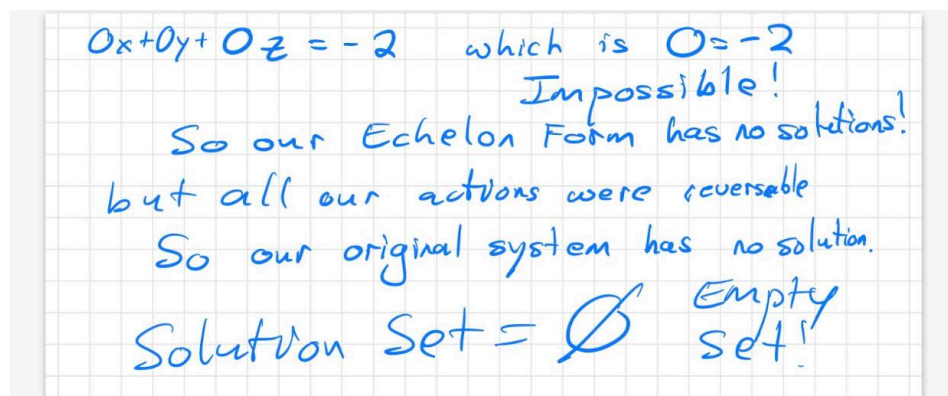 0x+0y+0z = -2 which is 0=-2
Impossible!
So our Echelon Form has no solutions!
but all our actions were reversable
So our original system has no solution.
Solution Set = Ø Empty
set!